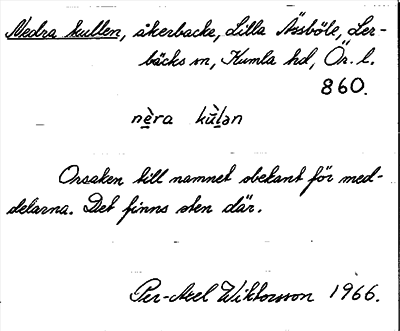 Nedra kullen, åkerbacke, Lilla Ässböle, Ler-
bäcks sn, Kumla hd, Ör. l.
860.
nè̱ra kù̱lən
Orsaken till namnet obekant för med-
delarna. Det finns sten där.
Per-Axel Wiktorsson 1966.